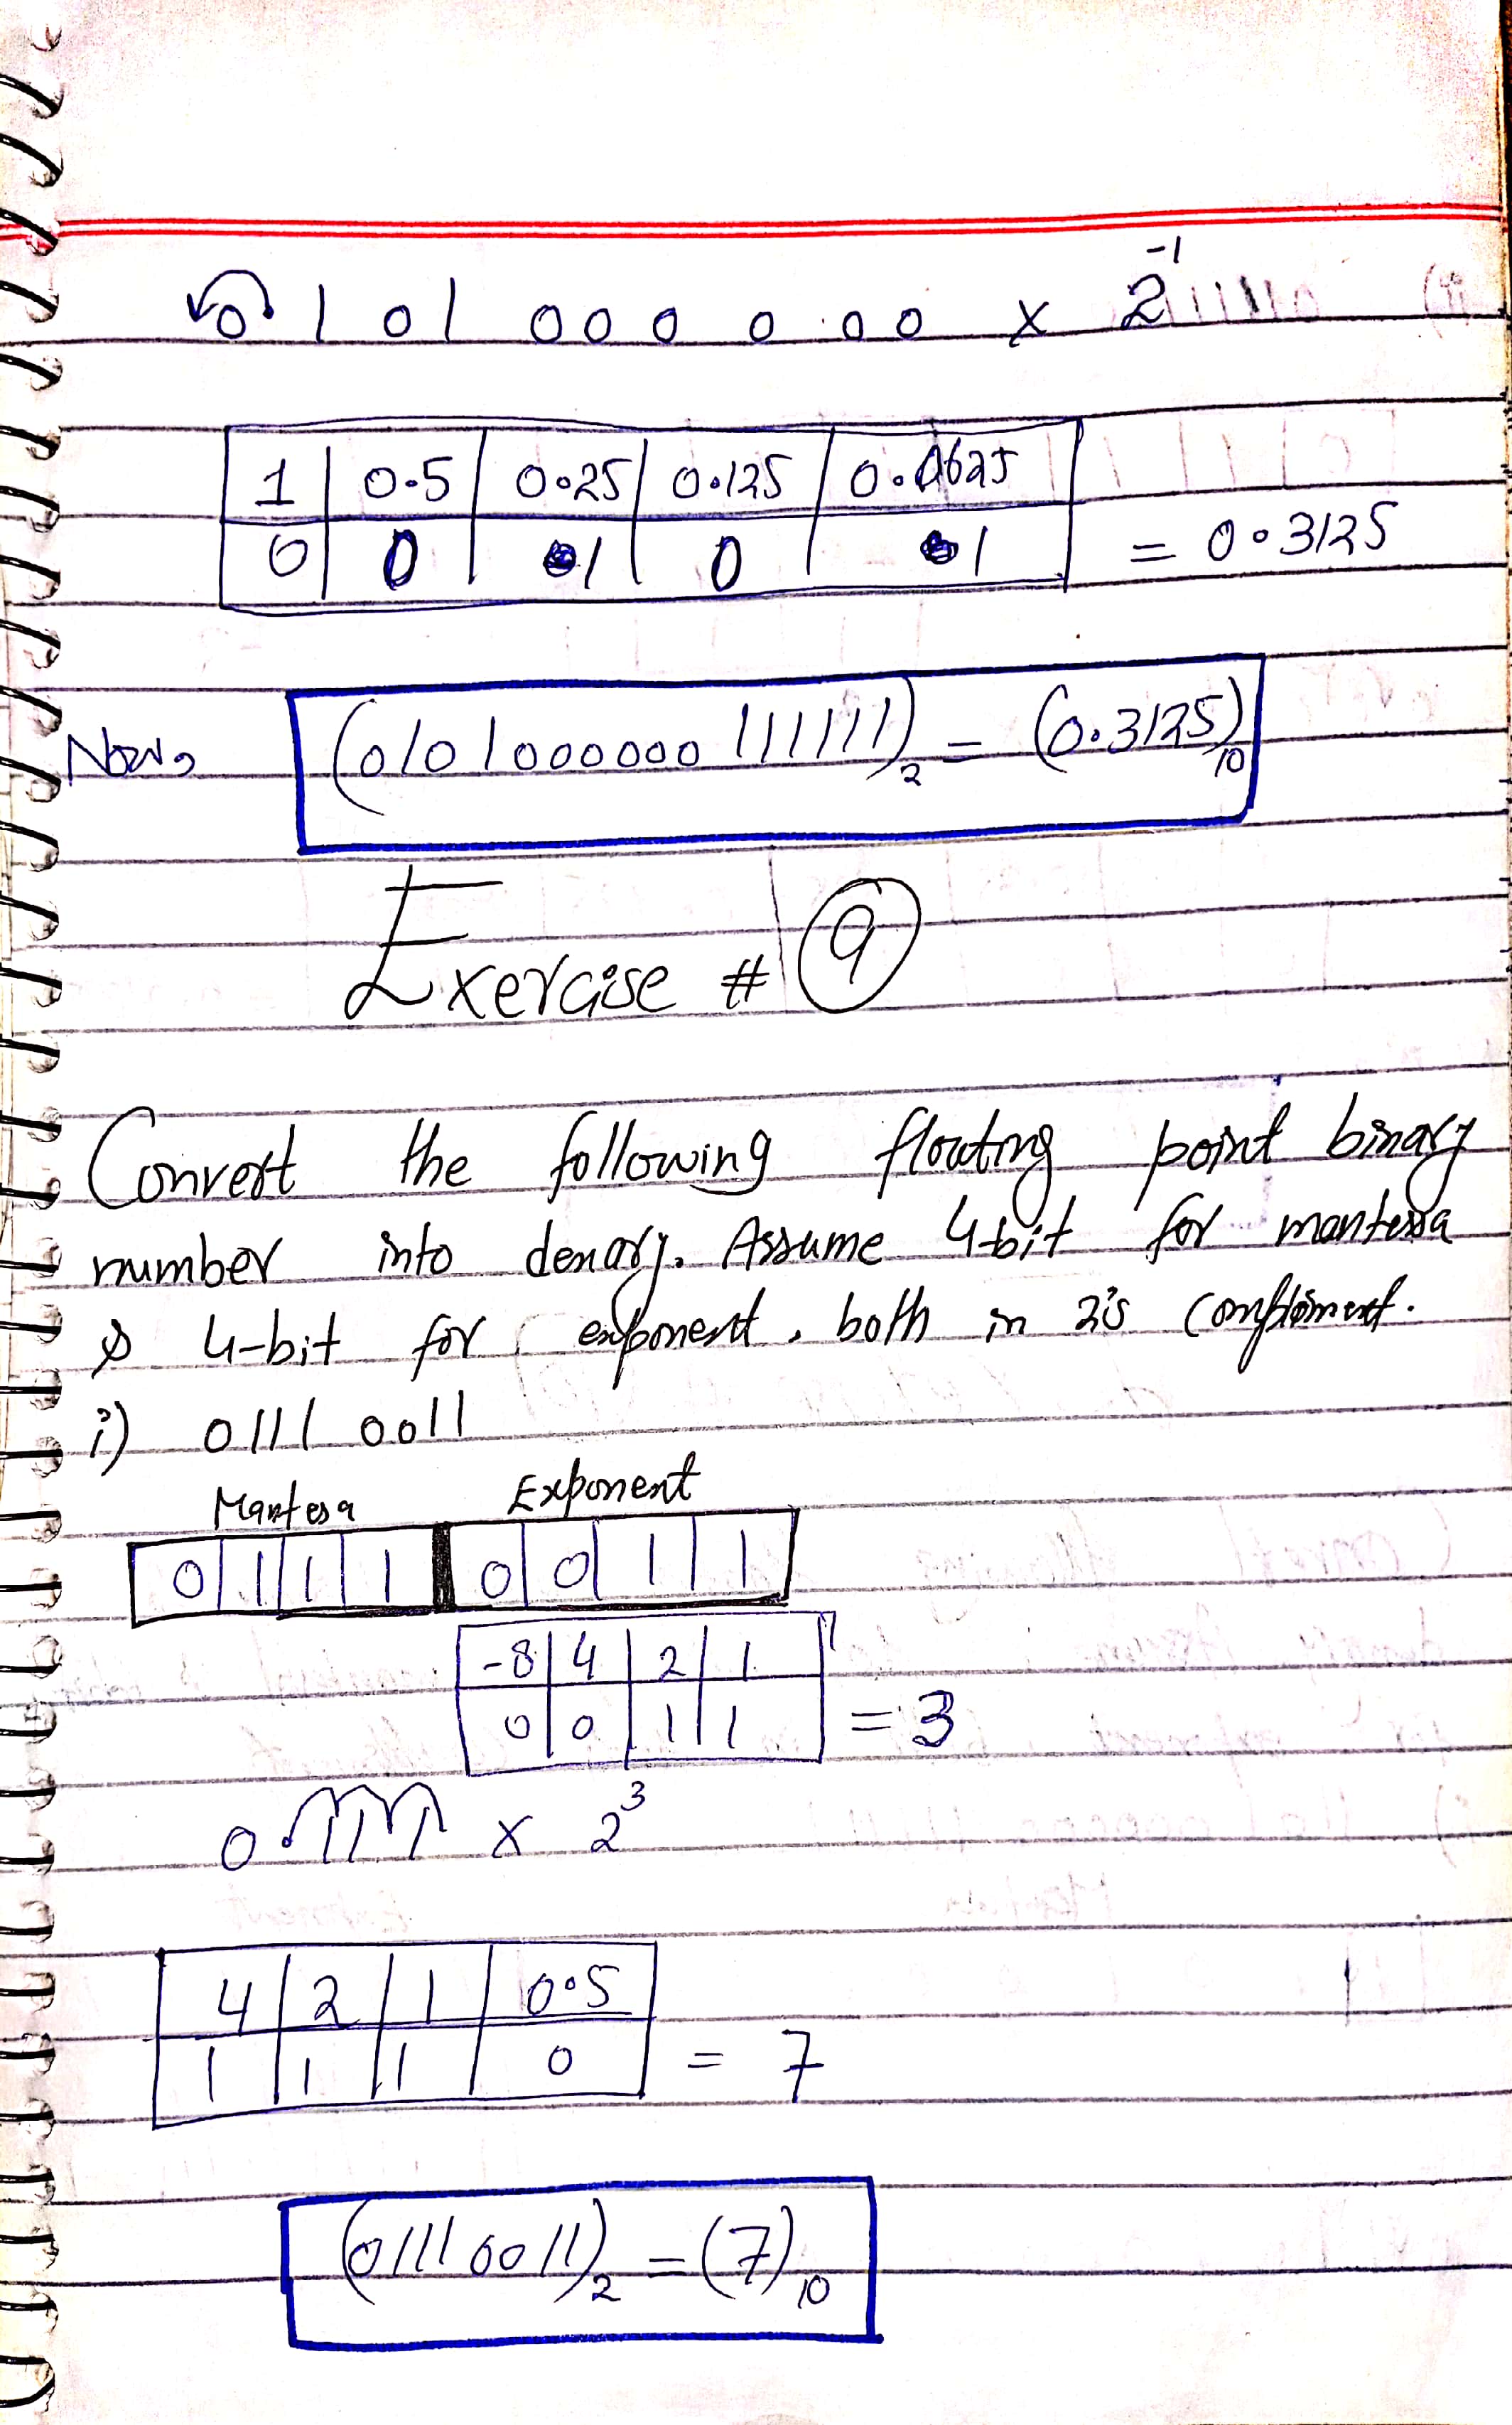 0 1 0 1 0 0 0 0 0 0 x 2⁻¹
1 | 0.5 | 0.25 | 0.125 | 0.0625
0 | 0 | 1 | 0 | 1 = 0.3125
Now, (0101000000 111111)₂ = (0.3125)₁₀
Exercise # 9
Convert the following floating point binary
number into denary. Assume 4-bit for mantessa
& 4-bit for exponent, both in 2's compliment.
i) 0111 0011
Mantesa Exponent
0 | 1 | 1 | 1 | 0 | 0 | 1 | 1
-8 | 4 | 2 | 1
0 | 0 | 1 | 1 = 3
0.111 x 2³
4 | 2 | 1 | 0.5
1 | 1 | 1 | 0 = 7
(0111 0011)₂ = (7)₁₀